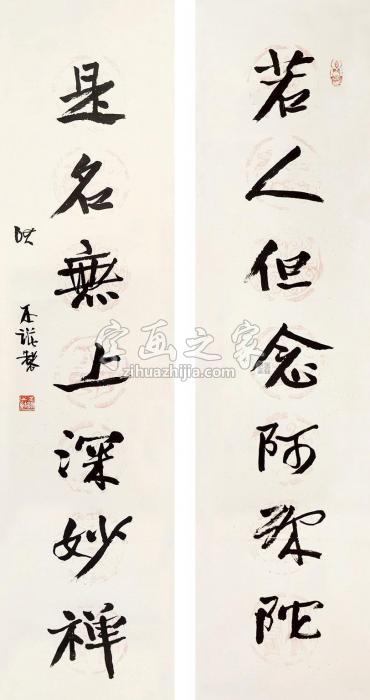 若人但念阿弥陀
是名無上深妙禅
字画之家
zihuazhijia.com